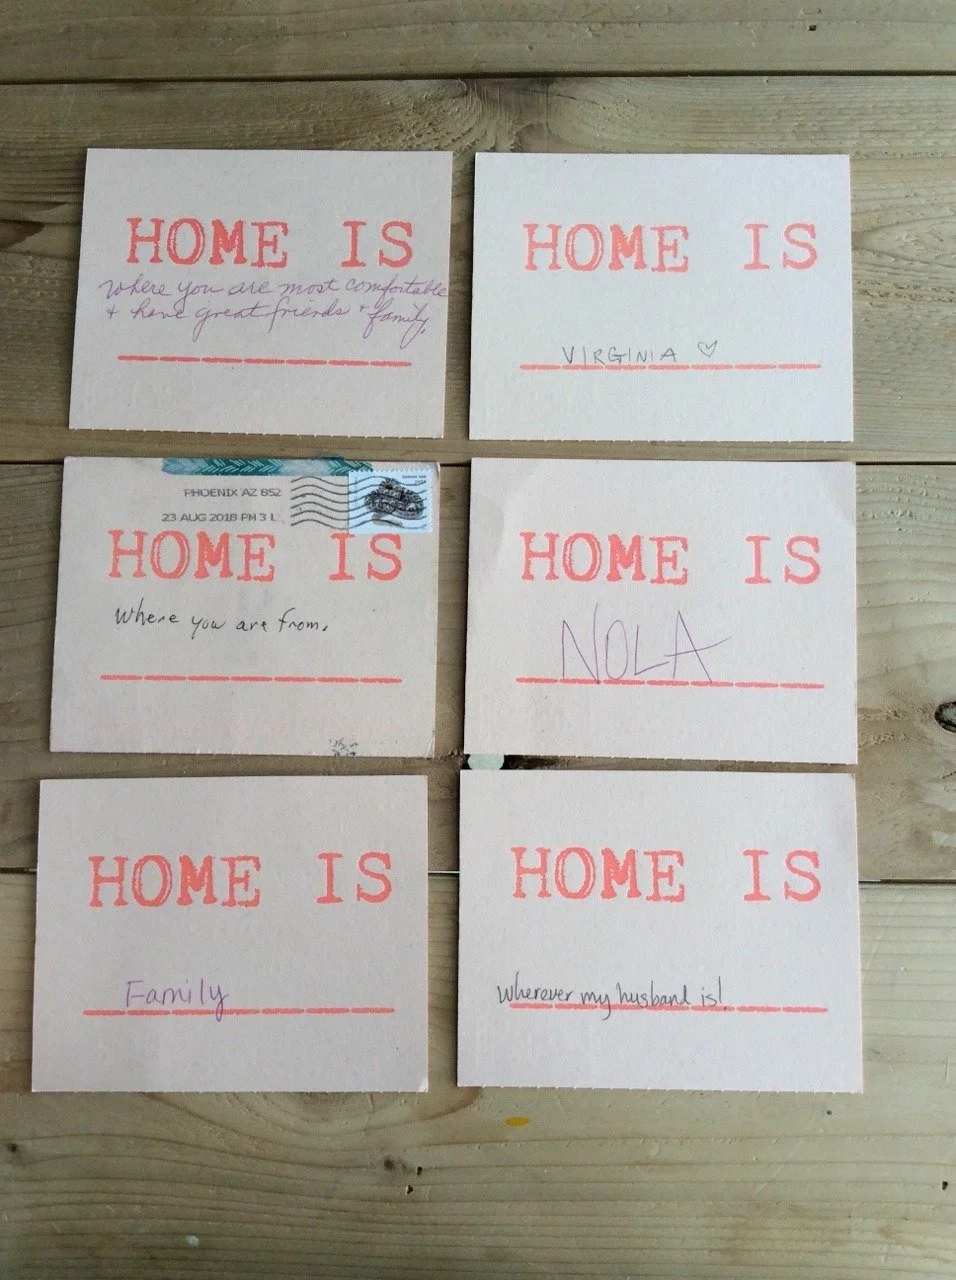 HOME IS
where you are most comfortable
+ have great friends + family.
HOME IS
VIRGINIA ♡
PHOENIX AZ 852
23 AUG 2018 PM 3 L
HOME IS
Where you are from.
HOME IS
NOLA
HOME IS
Family
HOME IS
Wherever my husband is!